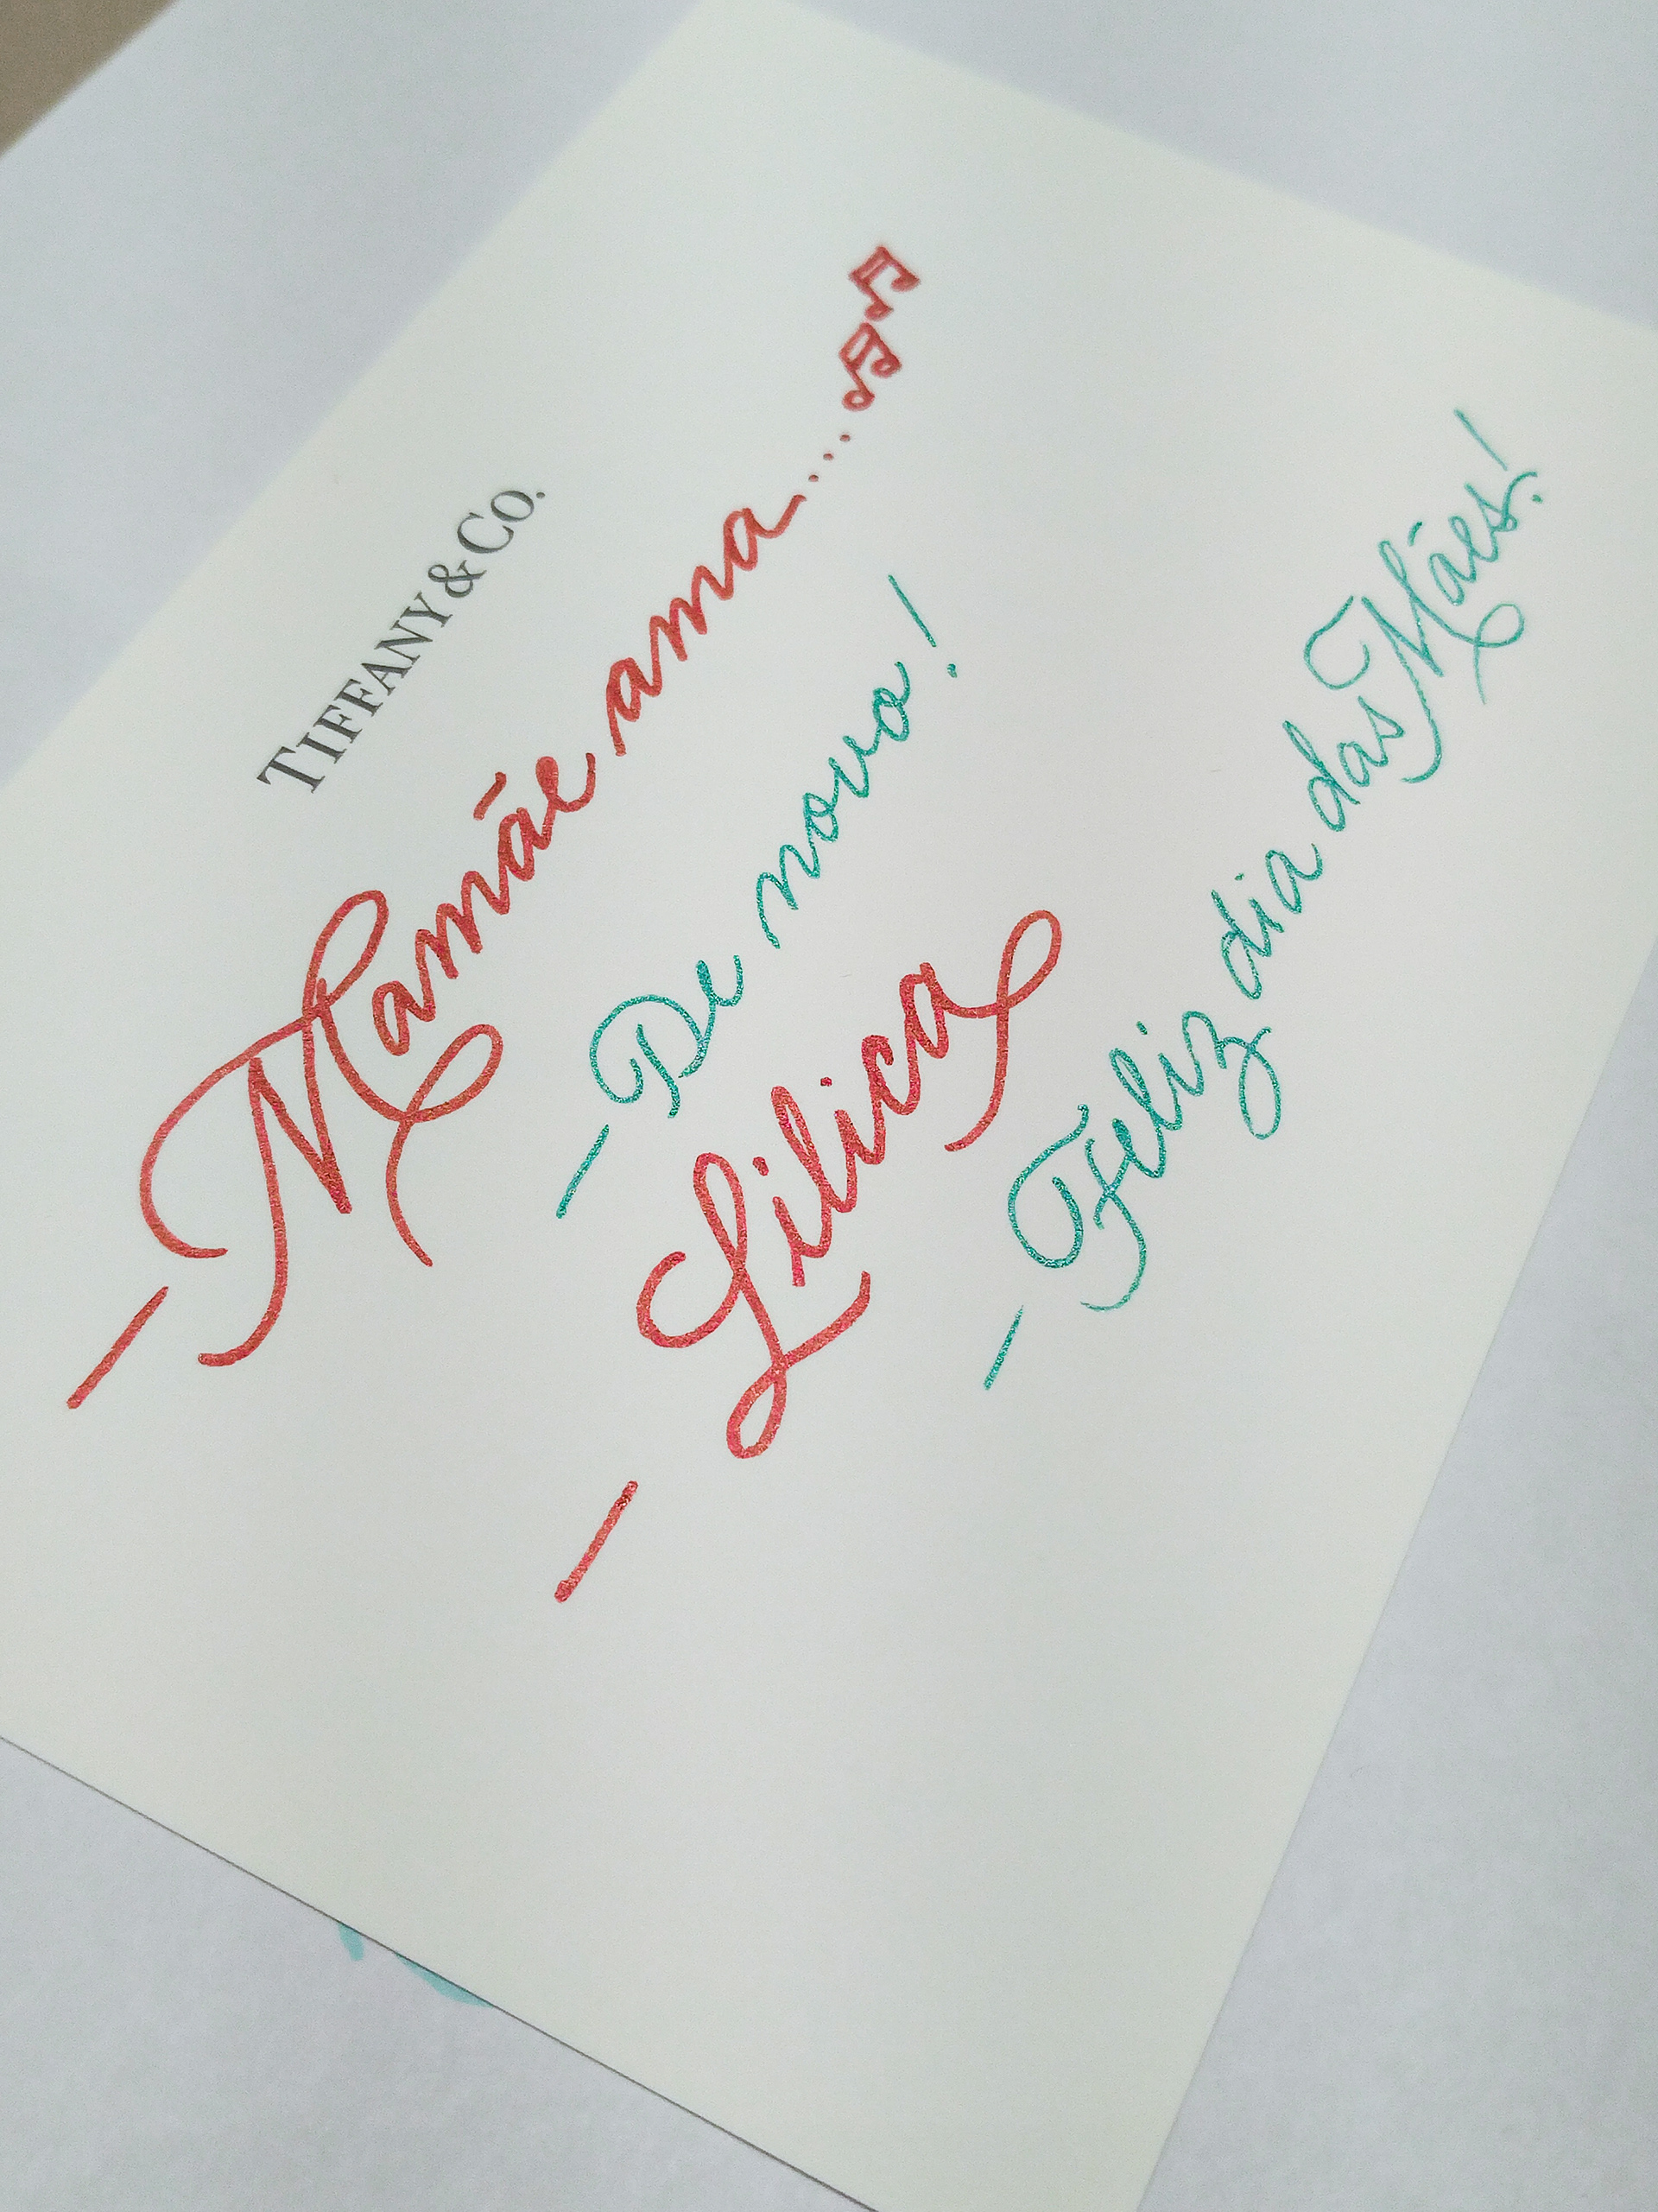 TIFFANY & CO.
— Mamãe ama.... ♫♫
— De novo!
— Lilica
— Feliz dia das Mães!